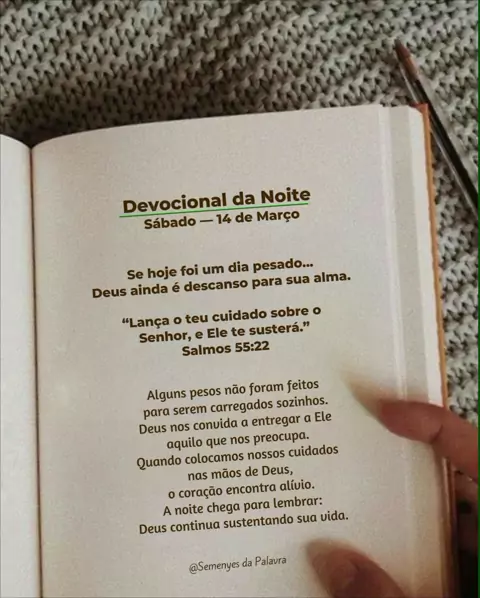 Devocional da Noite
Sábado — 14 de Março
Se hoje foi um dia pesado...
Deus ainda é descanso para sua alma.
“Lança o teu cuidado sobre o
Senhor, e Ele te susterá.”
Salmos 55:22
Alguns pesos não foram feitos
para serem carregados sozinhos.
Deus nos convida a entregar a Ele
aquilo que nos preocupa.
Quando colocamos nossos cuidados
nas mãos de Deus,
o coração encontra alívio.
A noite chega para lembrar:
Deus continua sustentando sua vida.
@Semenyes da Palavra